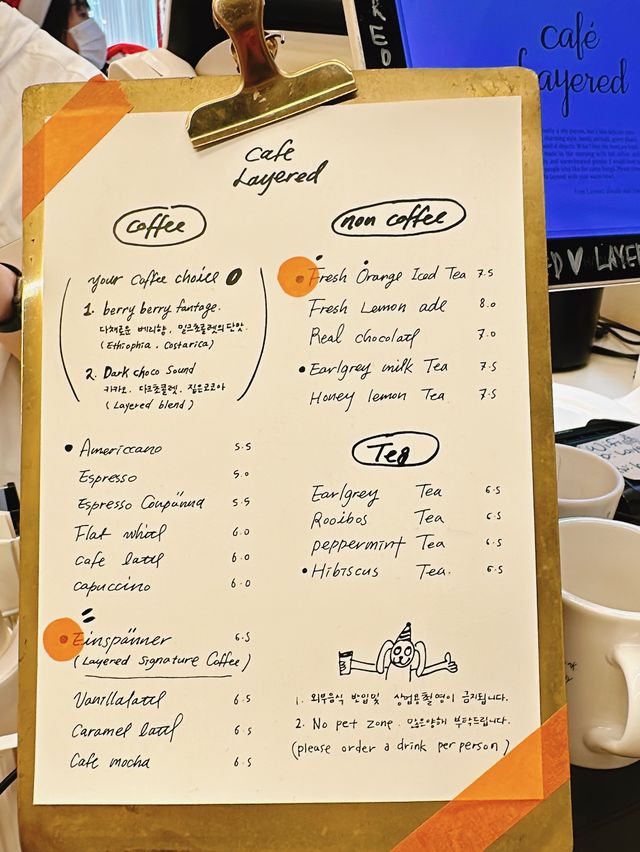 café
Layered
Cafe
Layered
Coffee
your Coffee choice
1. berry berry fantage.
다채로운 베리향, 밀크초콜렛의 단맛.
(Ethiophia, Costarica)
2. Dark choco Sound
카카오, 다크초콜렛, 짙은코코아
(Layered blend)
Americcano 5.5
Espresso 5.0
Espresso 5.5
Flat 6.0
cafe latte 6.0
capuccino 6.0
Einspänner 6.5
(Layered Signature Coffee)
Vanillalatte 6.5
Caramel latte 6.5
Cafe mocha 6.5
non coffee
Fresh Orange Iced Tea 7.5
Fresh Lemon ade 8.0
Real chocolate 7.0
Earlgrey milk Tea 7.5
Honey lemon Tea 7.5
Tea
Earlgrey Tea 6.5
Rooibos Tea 6.5
peppermint Tea 6.5
Hibiscus Tea. 6.5
1. 외부음식 반입및 상업용촬영이 금지됩니다.
2. No pet zone. 많은양해 부탁드립니다.
(please order a drink per person)
LAYER